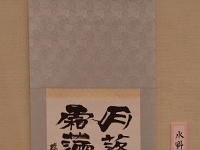 月落
霜滿
水野